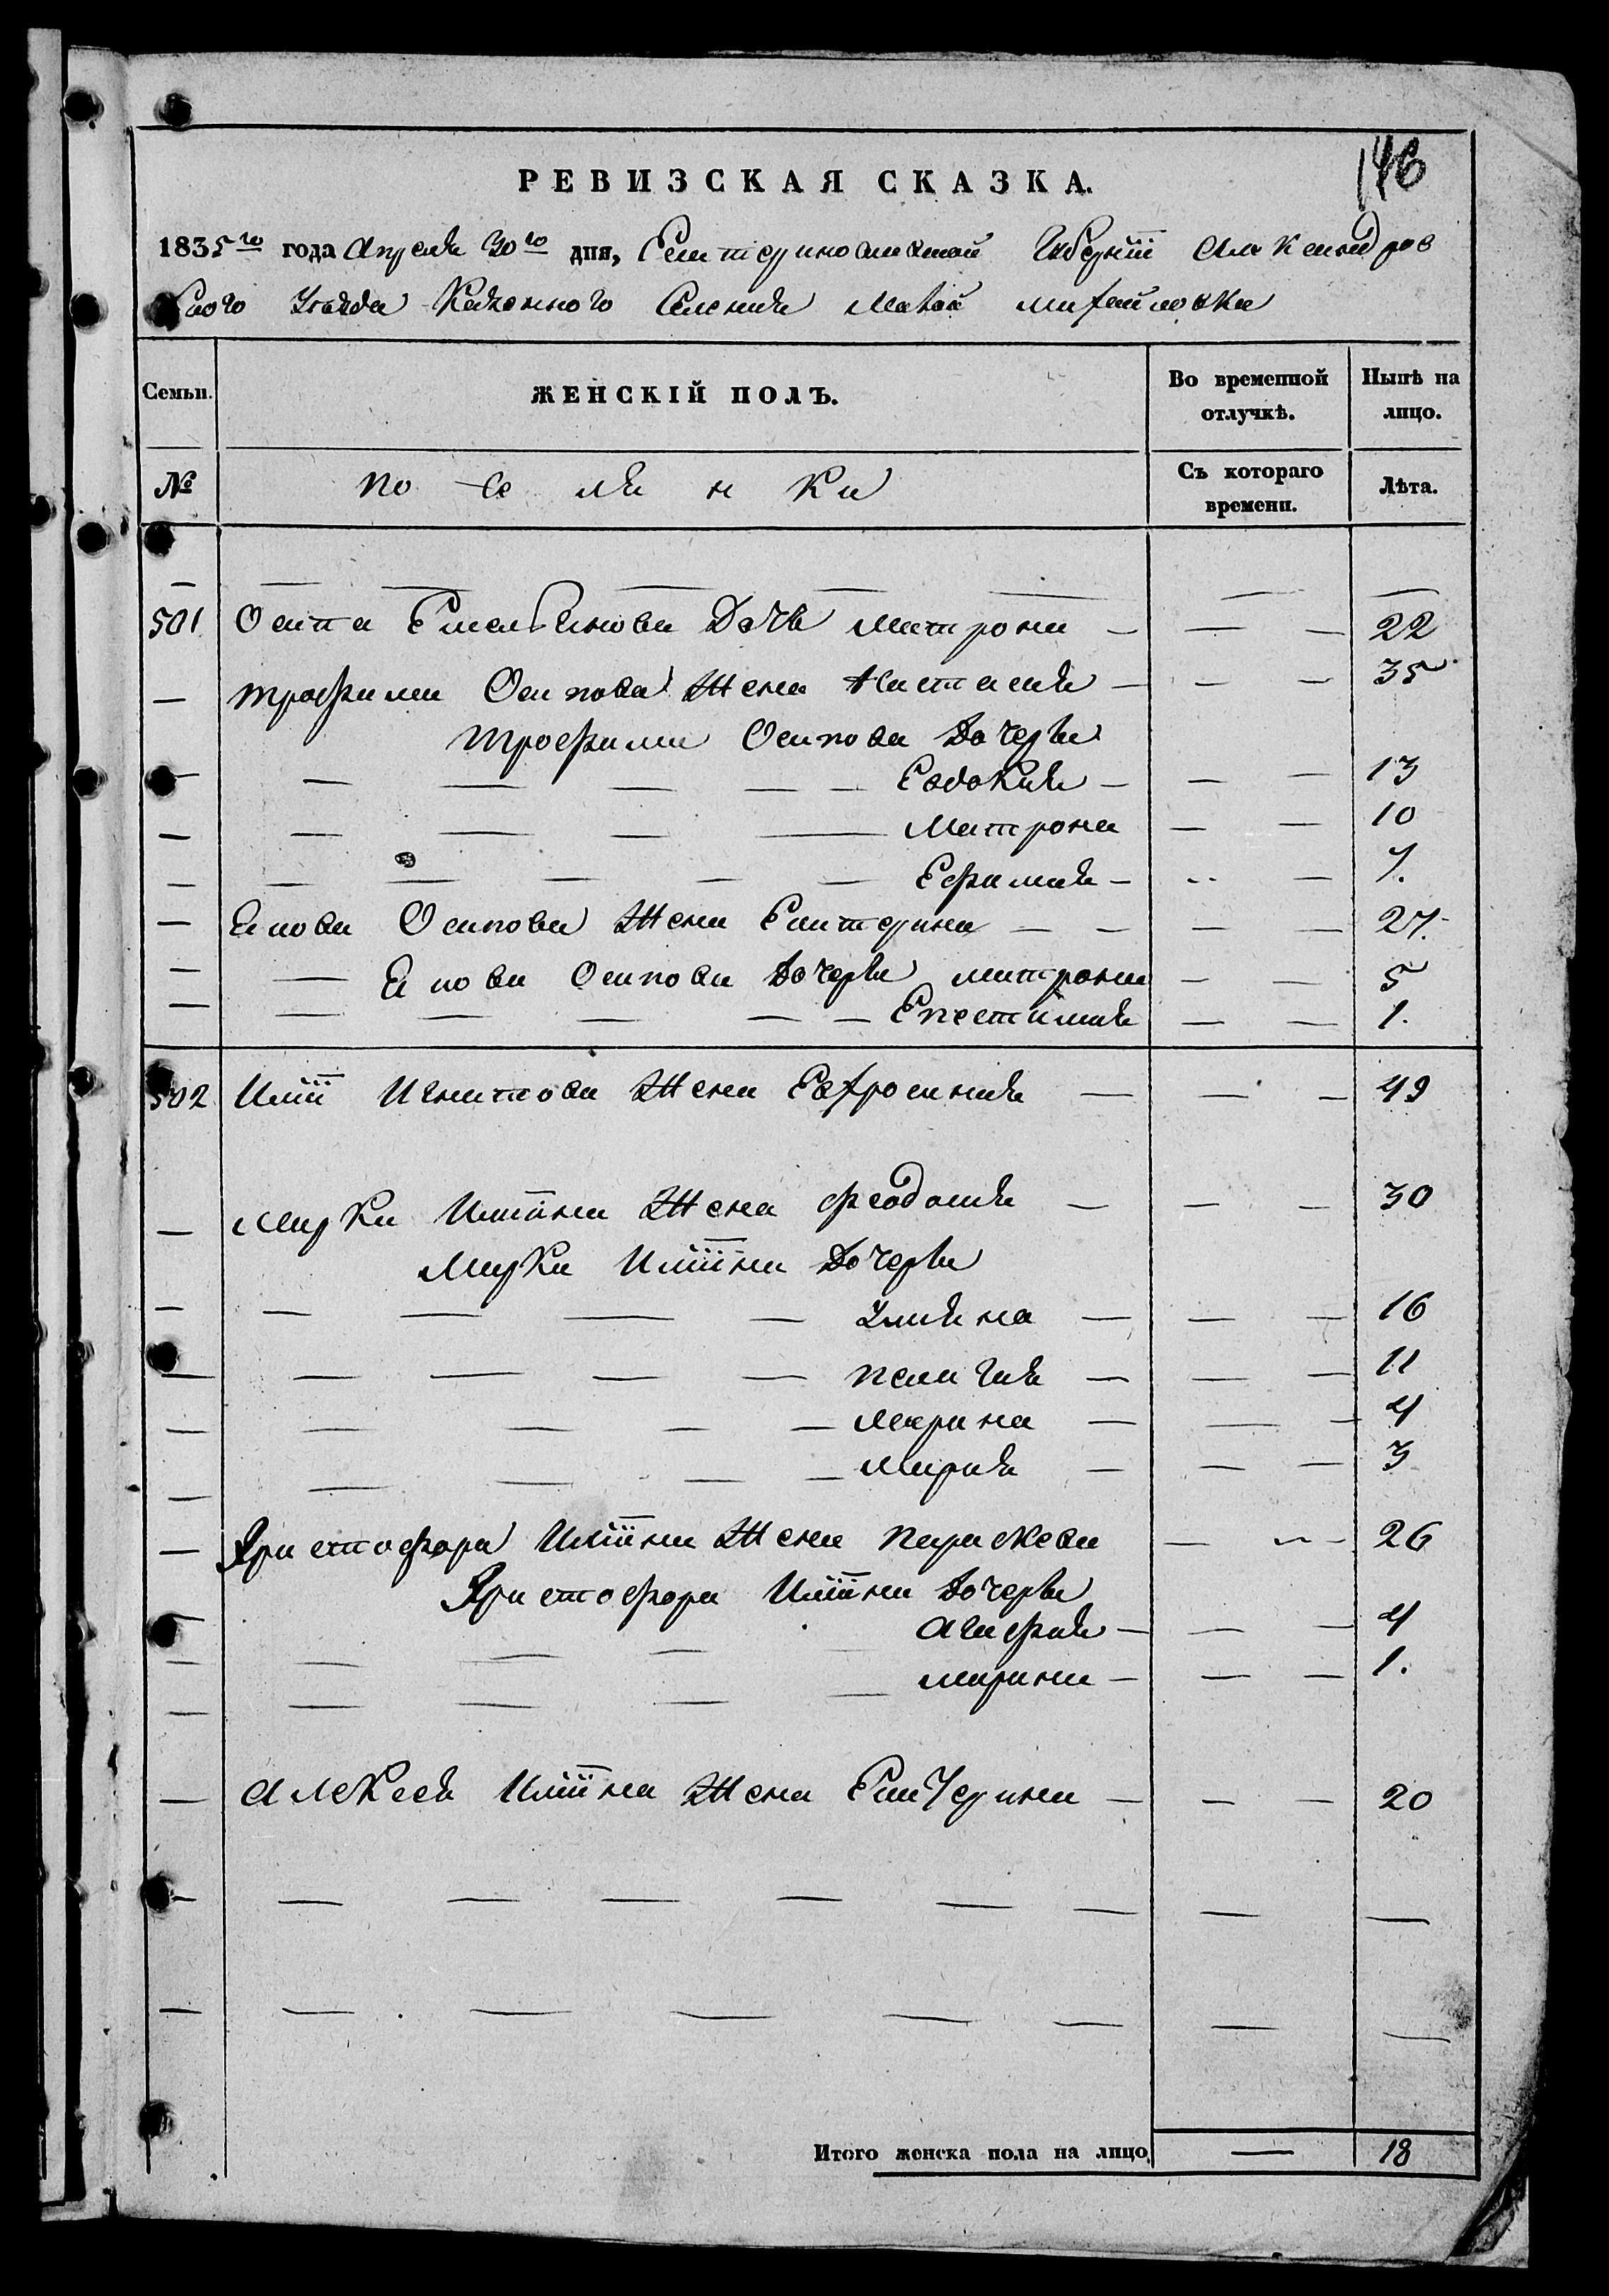 146
РЕВИЗСКАЯ СКАЗКА.
1835го года Апреля 30го дня, Екатеринославской Губернии Александров
ского Уезда Казенного Селения Малой михайловки
Семьи. ЖЕНСКІЙ ПОЛЪ. Во временной отлучкѣ. Нынѣ на лицо.
№ по се ля н ки Съ котораго времени. Лѣта.
501 Осипа Емельянова Дочь матрона 22
трофима Осипова Жена Настасия 35
трофима Осипова Дочери
Евдокия 13
Матрона 10
Ефимия 7.
Якова Осипова Жена Екатерина 27.
Якова Осипова Дочери матрона 5
Епестимия 1.
502 Илии Игнатова Жена Евфросиния 49
Марка Илиина Жена феодосия 30
Марка Илиина Дочери
Улияна 16
пелагия 11
Марина 4
Мария 3
Христофора Илиина Жена параскева 26
Христофора Илиина Дочери
Агафия 4
марина 1.
Алексея Илиина Жена Екатерина 20
Итого женска пола на лицо 18